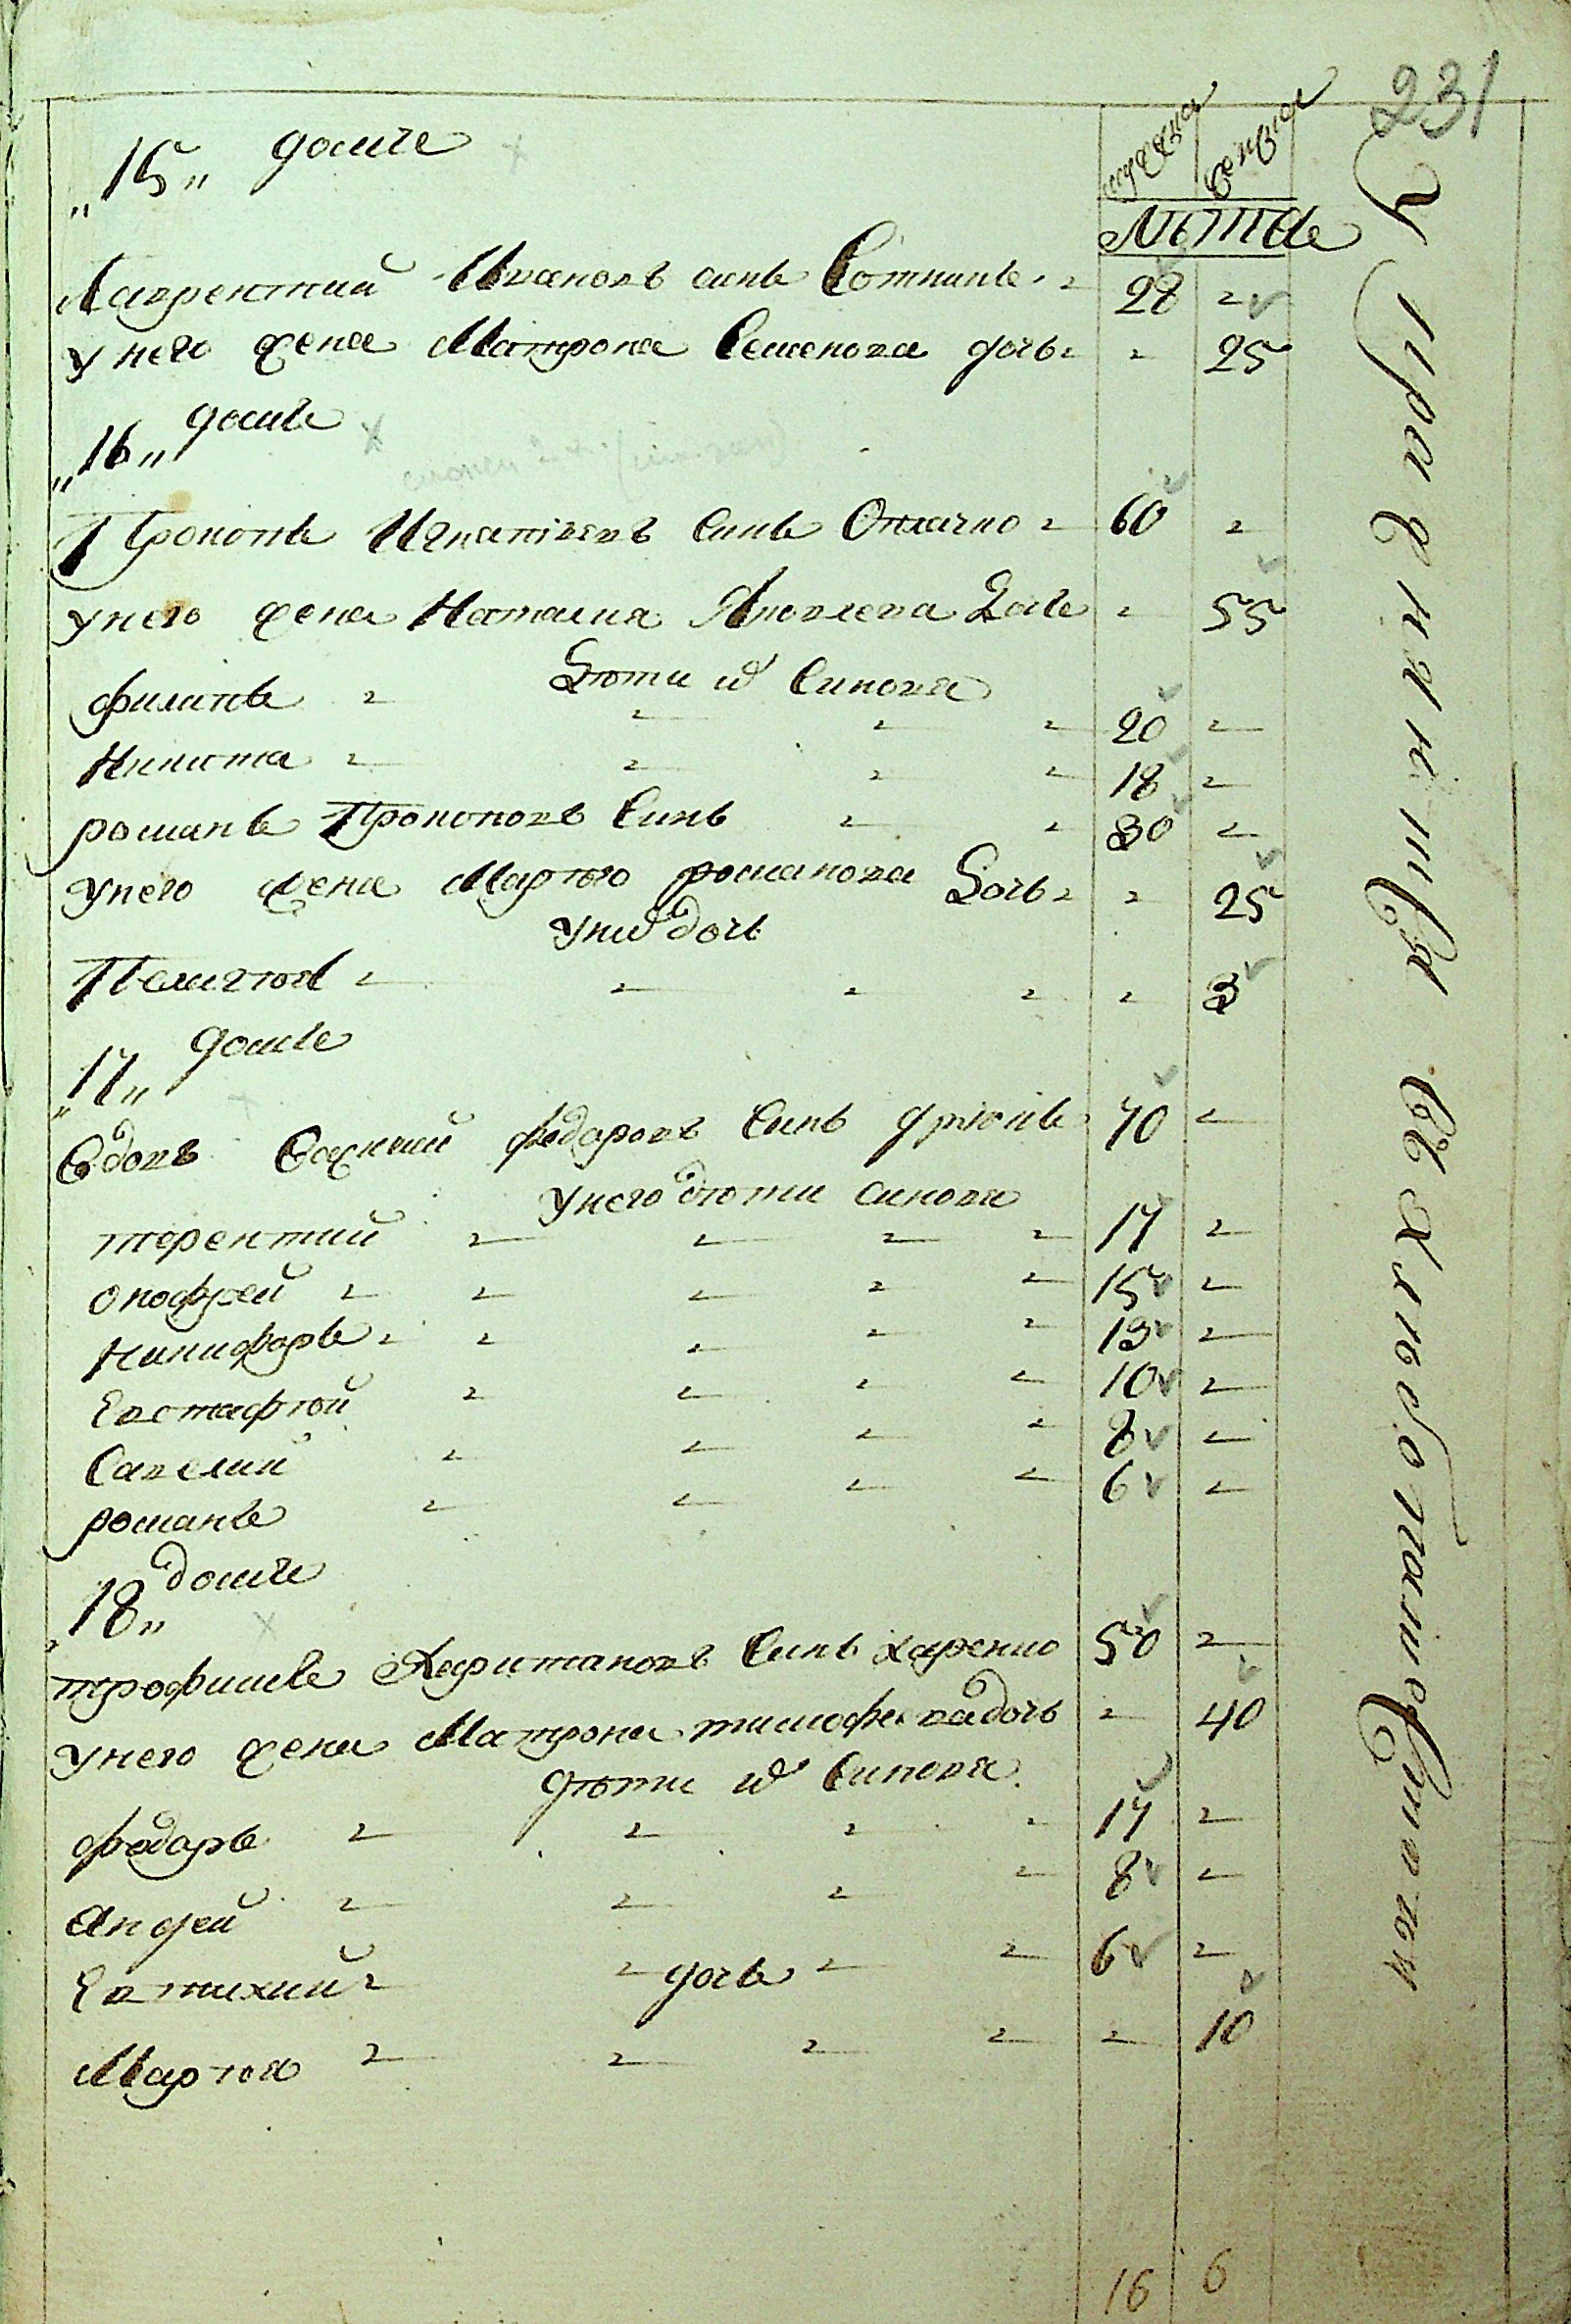 231
мужска женска
Летъ
„15„ домъ
Лаврентий Ивановъ синъ Сотникъ 28
У него жена Матрона Семенова дочь 25
„16„ домъ
Прокопъ Игнатіевъ Синъ 60
У него жена Наталия Яковлева Дочь 55
Дѣти их Синовя
Филипъ 20
Никита 18
Романъ Прокоповъ Синъ 30
У него жена Марѳа Романова Дочь 25
У них дочь
Пелагѣя 3
„17„ домъ
Вдовъ Федоровъ Синъ 70
У него дѣти синовя
Терентий 17
Онофрей 15
Никифоръ 13
Евстафѣй 10
Савелий 8
Романъ 6
„18„ домъ
Трофимъ Харитановъ Синъ Харенко 50
У него жена Матрона Тимофеева дочь 40
дѣти их Синовя
Федоръ 17
Андрей 8
Евтихий 6
дочь
Марѳа 10
16 6